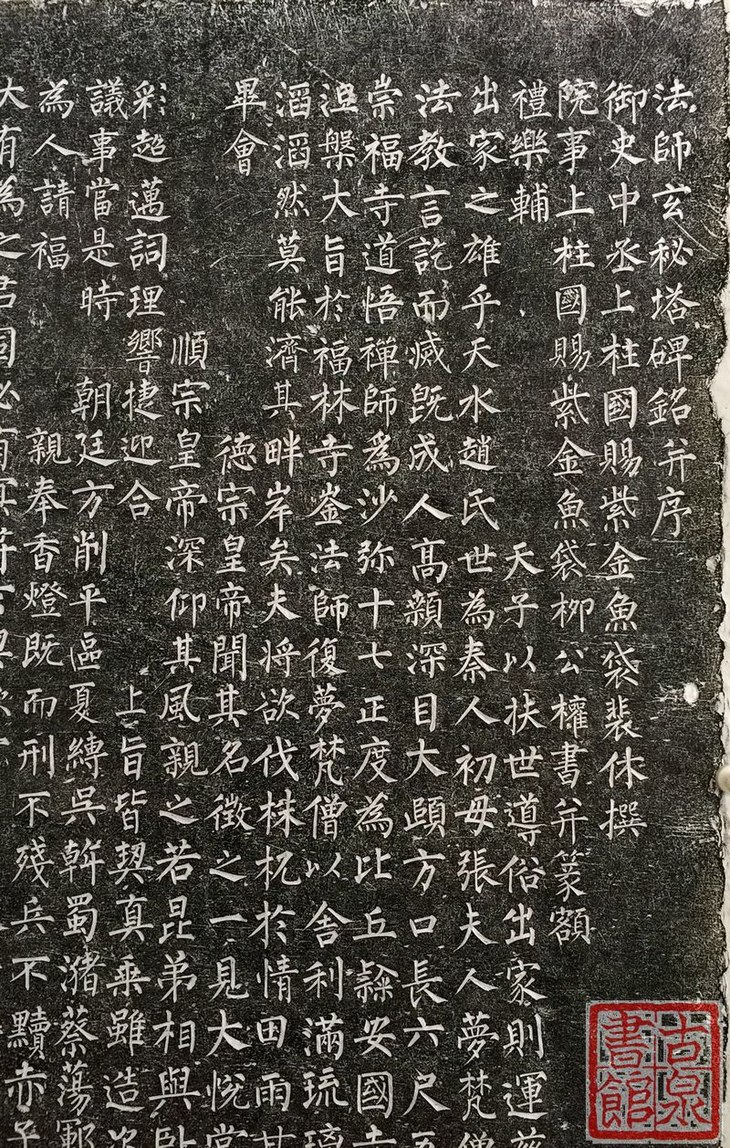 法師玄秘塔碑銘并序
御史中丞上柱國賜紫金魚袋裴休撰
院事上柱國賜紫金魚袋柳公權書并篆額
禮樂輔 天子以扶世導俗出家則運慈
出家之雄乎天水趙氏世為秦人初母張夫人夢梵僧
法教言訖而滅既成人高顙深目大頤方口長六尺五
崇福寺道悟禪師為沙弥十七正度為比丘隸安國寺
涅槃大旨於福林寺崟法師復夢梵僧以舍利滿琉璃
滔滔然莫能濟其畔岸矣夫將欲伐株杌於情田雨甘
畢會 德宗皇帝聞其名徵之一見大悅常
順宗皇帝深仰其風親之若昆弟相與臥
彩超邁詞理響捷迎合 上旨皆契真乘雖造次
議事當是時 朝廷方削平區夏縛吳斡蜀瀦蔡蕩鄆
為人請福 親奉香燈既而刑不殘兵不黷赤子
大有為之君固必有冥符
古泉書館